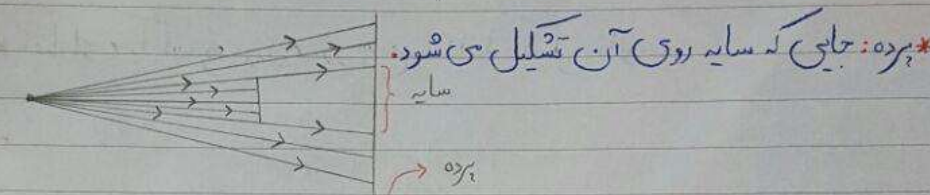 *پرده: جایی که سایه روی آن تشکیل می شود.
سایه
پرده